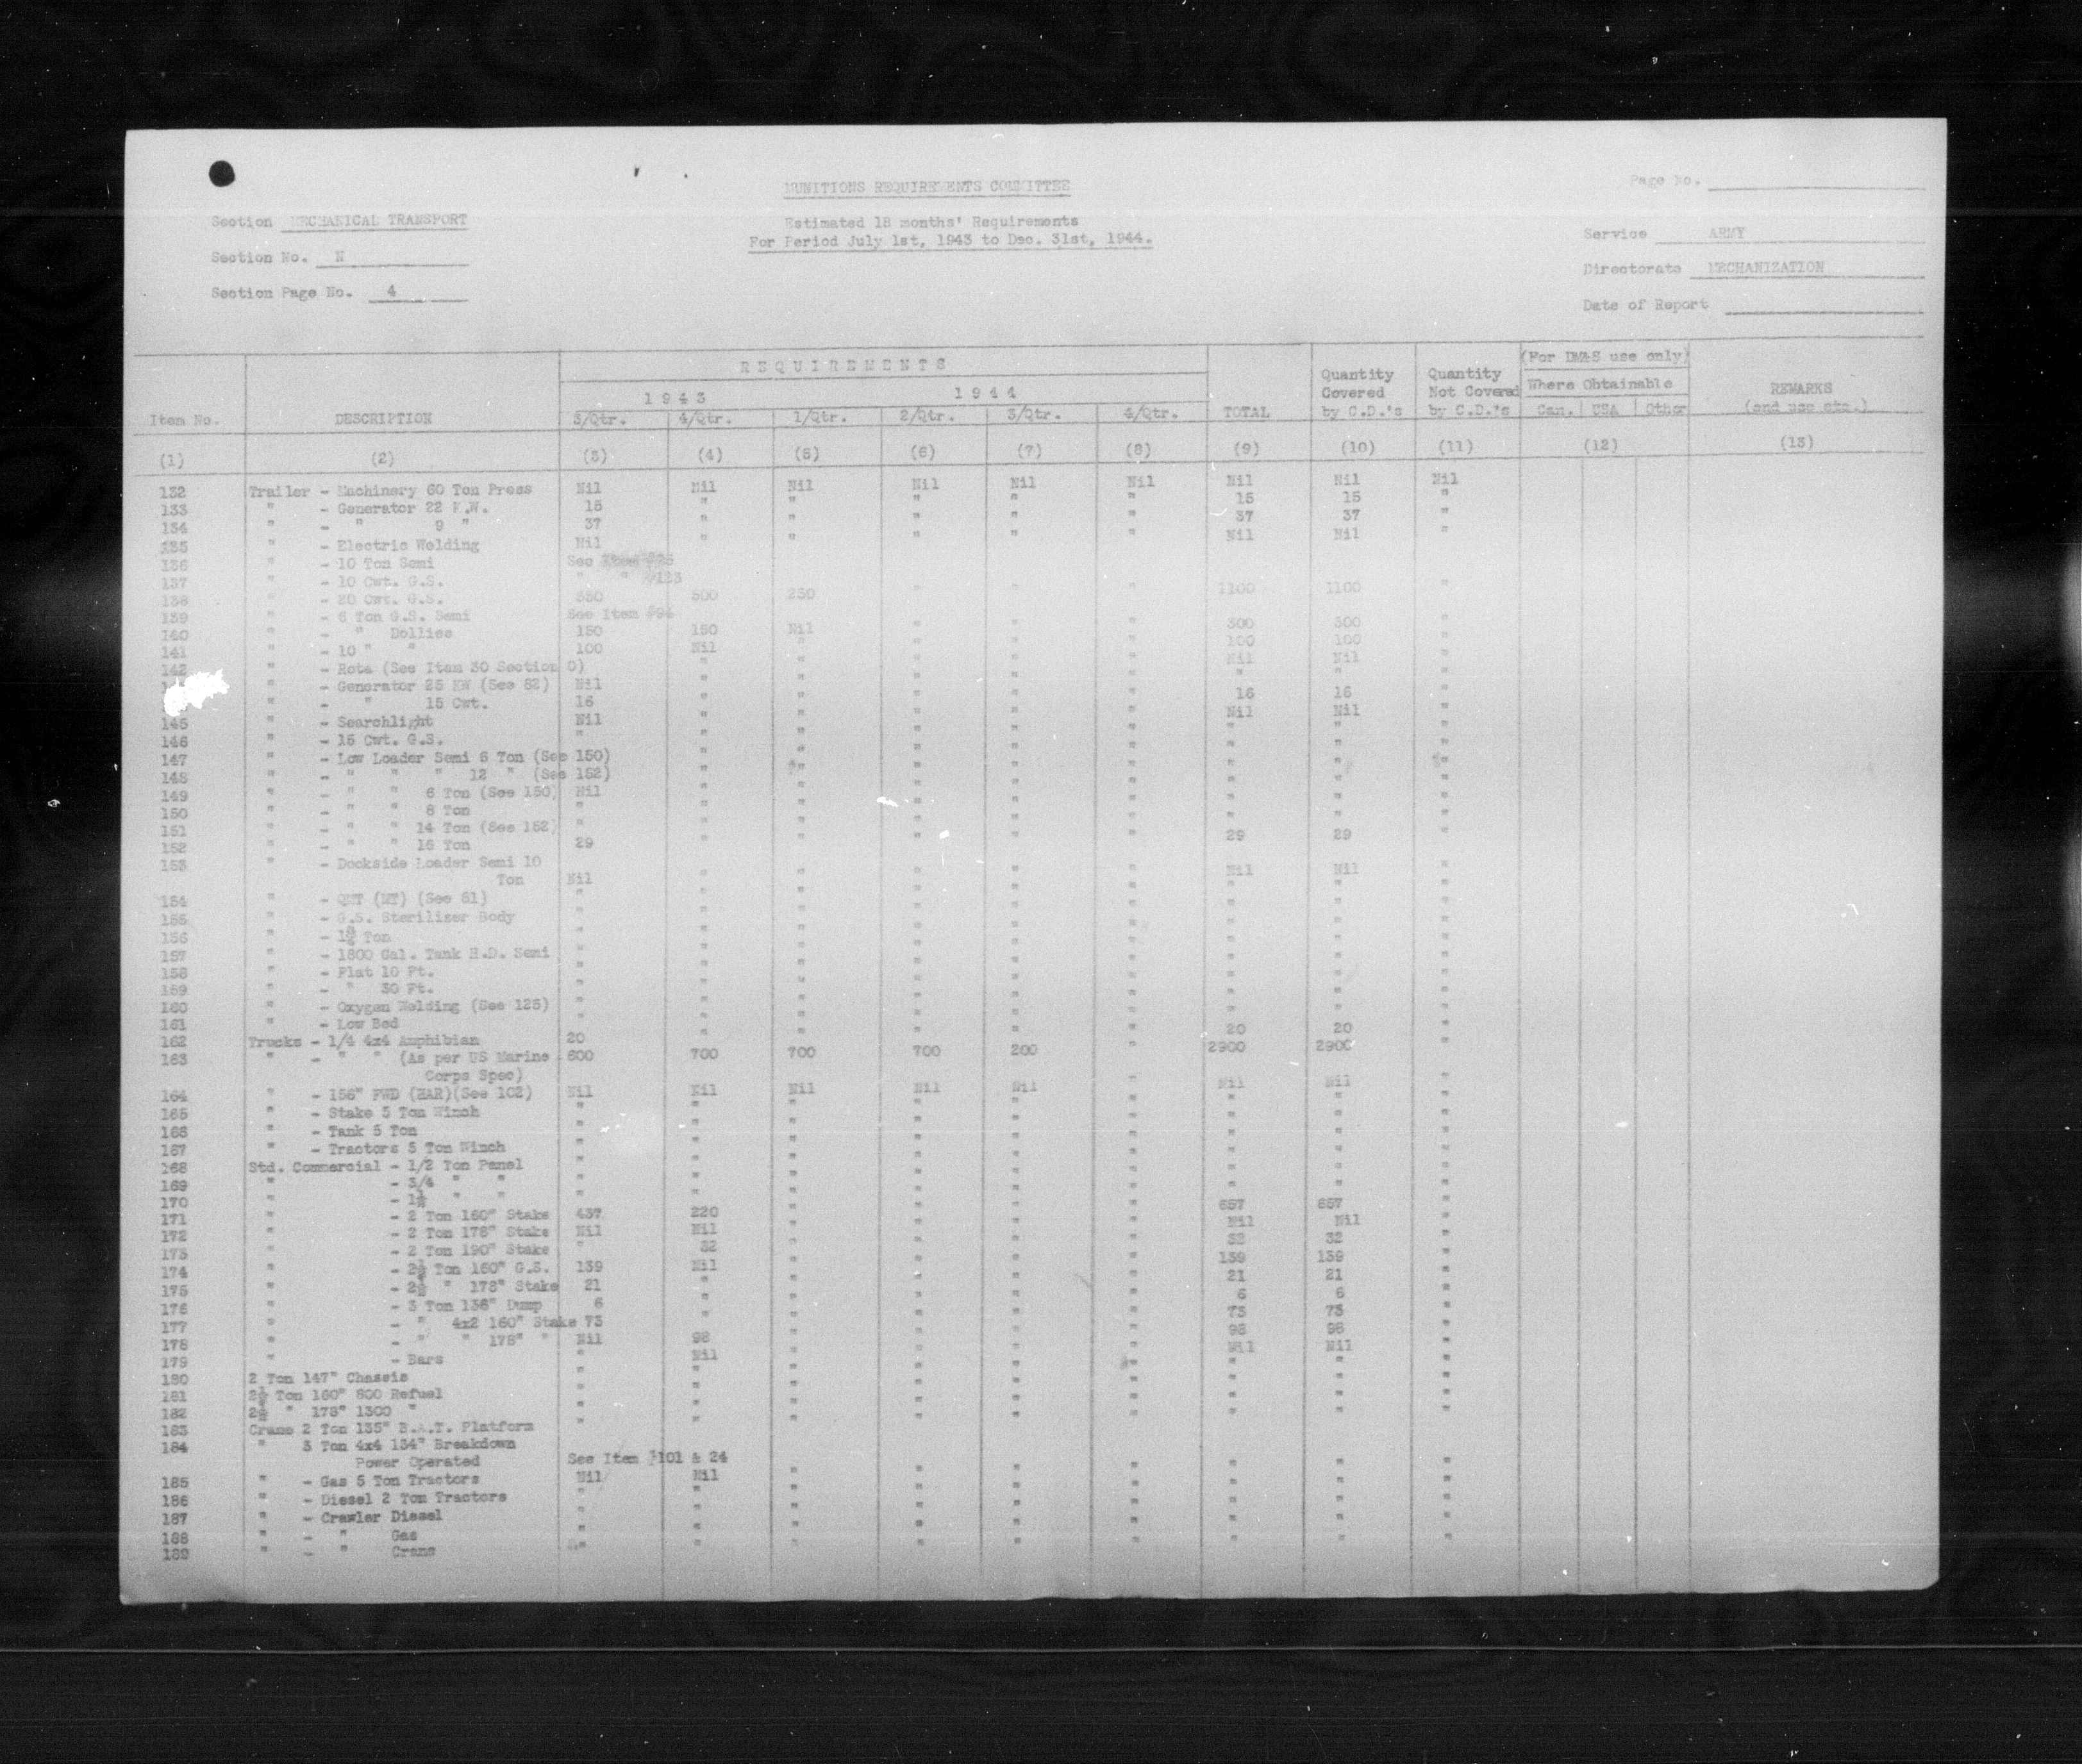 MUNITIONS REQUIREMENTS COMMITTEE
Page No.
Section MECHANICAL TRANSPORT
Estimated 18 months' Requirements
For Period July 1st, 1943 to Dec. 31st, 1944.
Service ARMY
Section No. N
Directorate MECHANIZATION
Section Page No. 4
Date of Report
REQUIREMENTS
(For DM&S use only)
1943 1944
Quantity Covered by C.D.'s
Quantity Not Covered by C.D.'s
Where Obtainable
REMARKS (and use etc.)
Item No. DESCRIPTION 3/Qtr. 4/Qtr. 1/Qtr. 2/Qtr. 3/Qtr. 4/Qtr. TOTAL Can. USA Other
(1) (2) (3) (4) (5) (6) (7) (8) (9) (10) (11) (12) (13)
132 Trailer - Machinery 60 Ton Press Nil Nil Nil Nil Nil Nil Nil Nil Nil
133 " - Generator 22 K.W. 15 " " " " " 15 15 "
134 " - " 9 " 37 " " " " " 37 37 "
135 " - Electric Welding Nil " " " " " Nil Nil "
136 " - 10 Ton Semi See
137 " - 10 Cwt. G.S. " " #123
138 " - 20 Cwt. G.S. 350 500 250 " " " 1100 1100 "
139 " - 6 Ton G.S. Semi See Item #94
140 " - " Dollies 150 150 Nil " " " 300 300 "
141 " - 10 " " 100 Nil " " " " 100 100 "
142 " - Rota (See Item 30 Section O) " " " " " Nil Nil "
" - Generator 25 KW (See 82) Nil " " " " " " " "
" - " 15 Cwt. 16 " " " " " 16 16 "
145 " - Searchlight Nil " " " " " Nil Nil "
146 " - 15 Cwt. G.S. " " " " " " " " "
147 " - Low Loader Semi 6 Ton (See 150) " " " " " " " "
148 " - " " " 12 " (See 152) " " " " " " " "
149 " - " " 6 Ton (See 150) Nil " " " " " " " "
150 " - " " 8 Ton " " " " " " " " "
151 " - " " 14 Ton (See 152) " " " " " " " " "
152 " - " " 16 Ton 29 " " " " " 29 29 "
153 " - Dockside Loader Semi 10
Ton Nil " " " " " Nil Nil "
154 " - QMT (MT) (See 61) " " " " " " " " "
155 " - G.S. Sterilizer Body " " " " " " " " "
156 " - Ton " " " " " " " " "
157 " - 1800 Gal. Tank H.D. Semi " " " " " " " " "
158 " - Flat 10 Ft. " " " " " " " " "
159 " - " 30 Ft. " " " " " " " " "
160 " - Oxygen Welding (See 125) " " " " " " " " "
161 " - Low Bed " " " " " " " " "
162 Trucks - 1/4 4x4 Amphibian 20 " " " " " 20 20 "
163 " - " " (As per US Marine 600 700 700 700 200 " 2900 2900 "
Corps Spec)
164 " - 156" FWD (HAR)(See 102) Nil Nil Nil Nil Nil " Nil Nil "
165 " - Stake 5 Ton Winch " " " " " " " " "
166 " - Tank 5 Ton " " " " " " " " "
167 " - Tractors 5 Ton Winch " " " " " " " " "
168 Std. Commercial - 1/2 Ton Panel " " " " " " " " "
169 " - 3/4 " " " " " " " " " " "
170 " - 1½ " " " " " " " " " " "
171 " - 2 Ton 160" Stake 437 220 " " " " 657 657 "
172 " - 2 Ton 178" Stake Nil Nil " " " " Nil Nil "
173 " - 2 Ton 190" Stake " 32 " " " " 32 32 "
174 " - 2½ Ton 160" G.S. 139 Nil " " " " 139 139 "
175 " - 2½ " 178" Stake 21 " " " " " 21 21 "
176 " - 3 Ton 136" Dump 6 " " " " " 6 6 "
177 " - " 4x2 160" Stake 73 " " " " " 73 73 "
178 " - " " 178" " Nil 98 " " " " 98 98 "
179 " - Bars " Nil " " " " Nil Nil "
180 2 Ton 147" Chassis " " " " " " " " "
181 2½ Ton 160" 800 Refuel " " " " " " " " "
182 2½ " 178" 1300 " " " " " " " " " "
183 Crane 2 Ton 135" B.A.T. Platform " " " " " " " " "
184 " 3 Ton 4x4 134" Breakdown
Power Operated See Item #101 & 24
185 " - Gas 5 Ton Tractors Nil Nil " " " " " " "
186 " - Diesel 2 Ton Tractors " " " " " " " " "
187 " - Crawler Diesel " " " " " " " " "
188 " - " Gas " " " " " " " " "
189 " - " Crane " " " " " " " " "